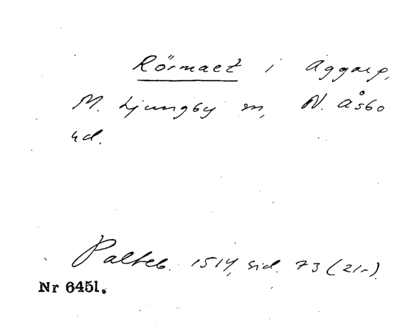 Rörmaet i Aggarp,
M. Ljungby sn, N. Åsbo
hd.
Palteb. 1514, sid. 73 (21r).
Nr 6451.